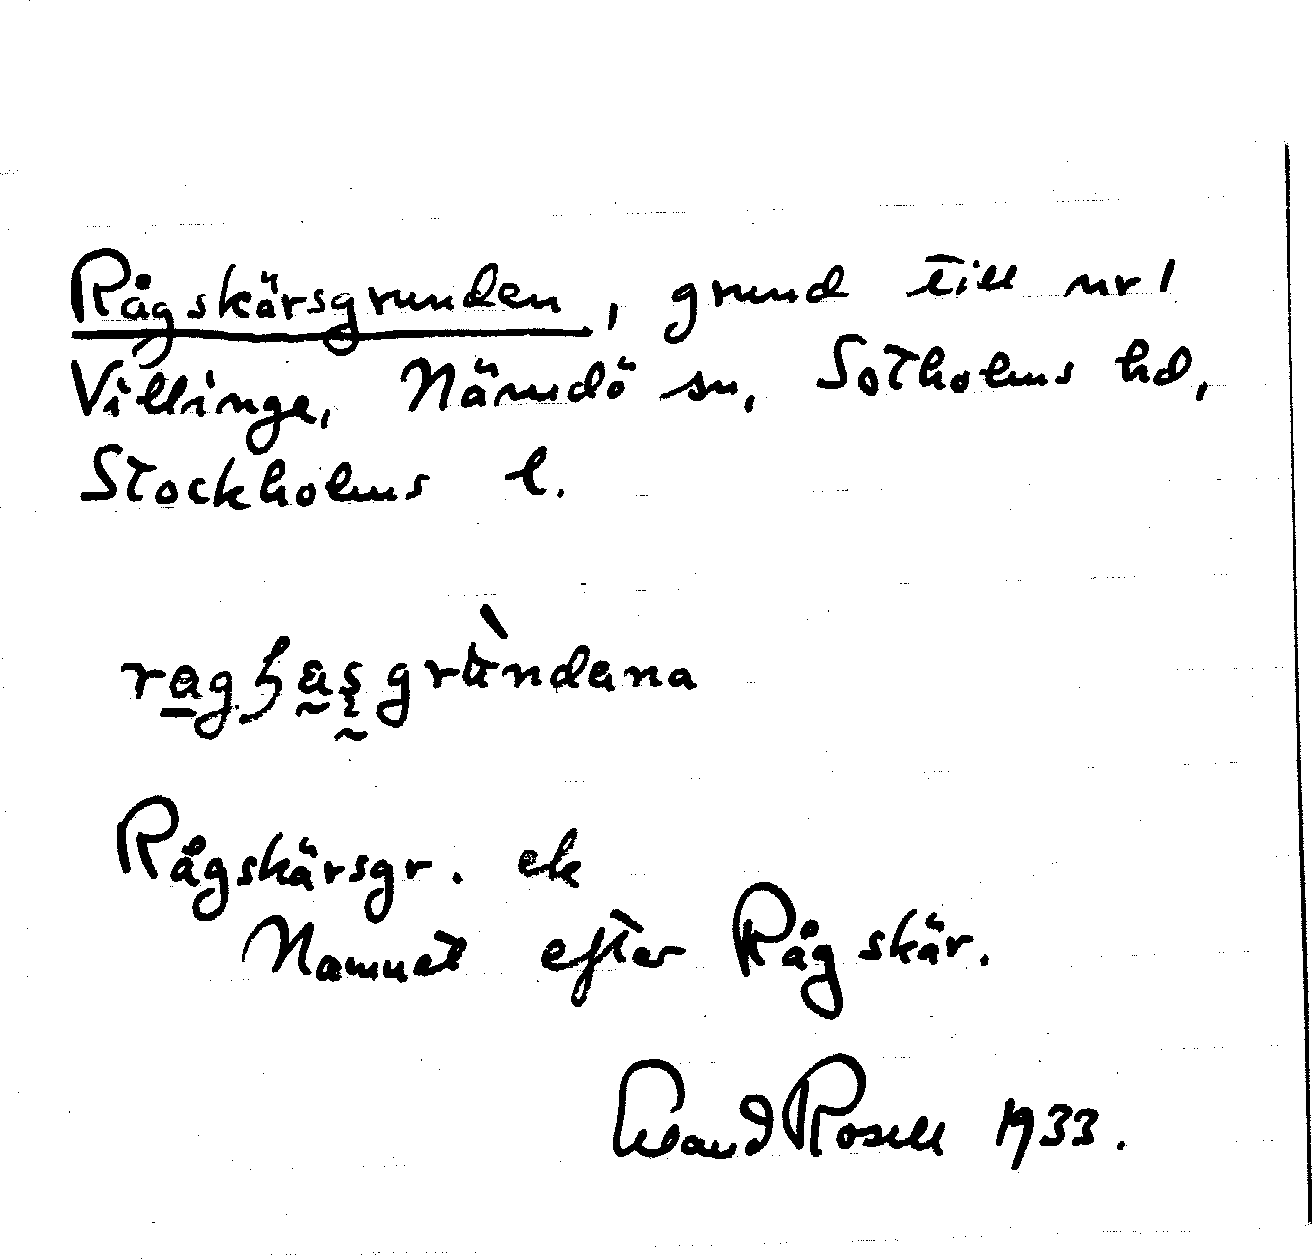 Rågskärsgrunden, grund till nr 1
Villinge, Nämdö sn, Sotholms hd,
Stockholms l.
Rågskärsgr. ek
Namnet efter Rågskär.
Rosell 1933.